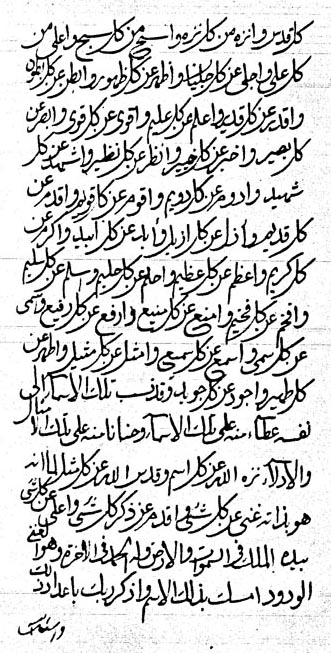 كل قديس وانزه من كل نزيه واسبح من كل سبيح واعلى من
كل علي واجلى عن كل جليل واظهر عن كل ظهور وابطن عن كل بطون
واقدر عن كل قدير واعلم عن كل عليم واقوى عن كل قوي وابصر عن
كل بصير واخبر عن كل خبير وانظر عن كل نظير واشهد عن كل
شهيد وادوم عن كل دويم واقوم عن كل قويم واقدم عن
كل قديم وازل عن كل ازيل وابد عن كل ابيد واكرم عن
كل كريم واعظم عن كل عظيم واحلم عن كل حليم وسلم عن كل سليم
وافخم عن كل فخيم وامنع عن كل منيع وارفع عن كل رفيع وسمى
عن كل سمي واسمع عن كل سميع وامثل عن كل مثيل واطهر عن
كل طهير واجود عن كل جويد وقد نسب تلك الاسماء الى
نفسه عطاء منه على تلك الاسماء وحنانا منه على تلك الامثال
والا نزه الله عن كل اسم وقدس الله عن كل مثل انه
هو بذاته غني عن كل شئ واقدم عن ذكر كل شئ واعلى عن كل شئ
بيده الملك في السموات والارض وله الحمد في الاخرة وهو الغني
الودود امسك بذلك الاسم واذكر ربك باعداد ذلك